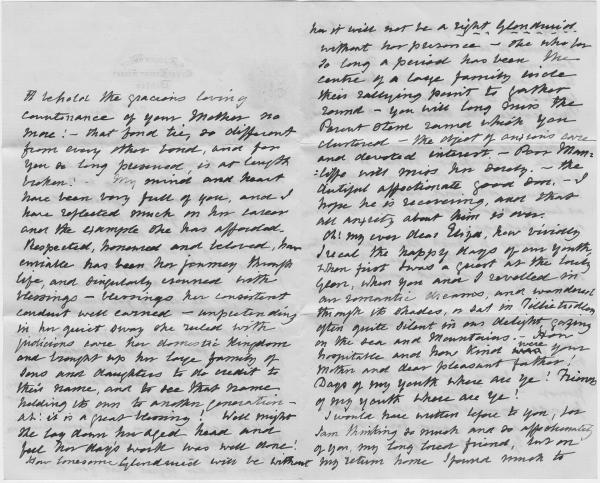 to behold the gracious loving
countenance of your Mother no
more! – that fond tie, so different
from every other bond, and for
you so long preserved, is at length
broken! – My mind and heart
have been very full of you, and I
have reflected much on her career
and the example she has afforded.
Respected, honoured and beloved, how
enviable has been her journey through
life, and singularly crowned with
blessings – blessings her consistent
conduct well earned – unpretending
in her quiet sway she ruled with
judicious care her domestic Kingdom
and brought up her large family of
sons and daughters to do credit to
their name, and to see that name
holding its own to another generation –
ah! it is a great blessing! Well might
she lay down her aged head and
feel her day's work was well done!
How lonesome Glendruid will be without
her it will not be a right Glendruid
without her presence – she who for
so long a period has been the
centre of a large family circle
their rallying point to gather
round – you will long miss the
Parent stem round which you
clustered – the object of anxious care
and devoted interest – Poor
will miss her sorely – the
dutiful affectionate good son – I
hope he is recovering, and that
all anxiety about him is over.
Oh! my ever dear Eliza, how vividly
I recal the happy days of our youth
when first I was a guest at the lovely
Glen, when you and I revelled in
our romantic dreams, and wandered
through its shades, or sat in
often quite silent in our delight gazing
on the sea and Mountains. How
hospitable and how kind were your
Mother and dear pleasant father!
Days of my youth where are ye! Friends
of my youth where are ye!
I would have written before to you, for
I am thinking so much and so affectionately
of you, my long loved friend, but on
my return home I found much to